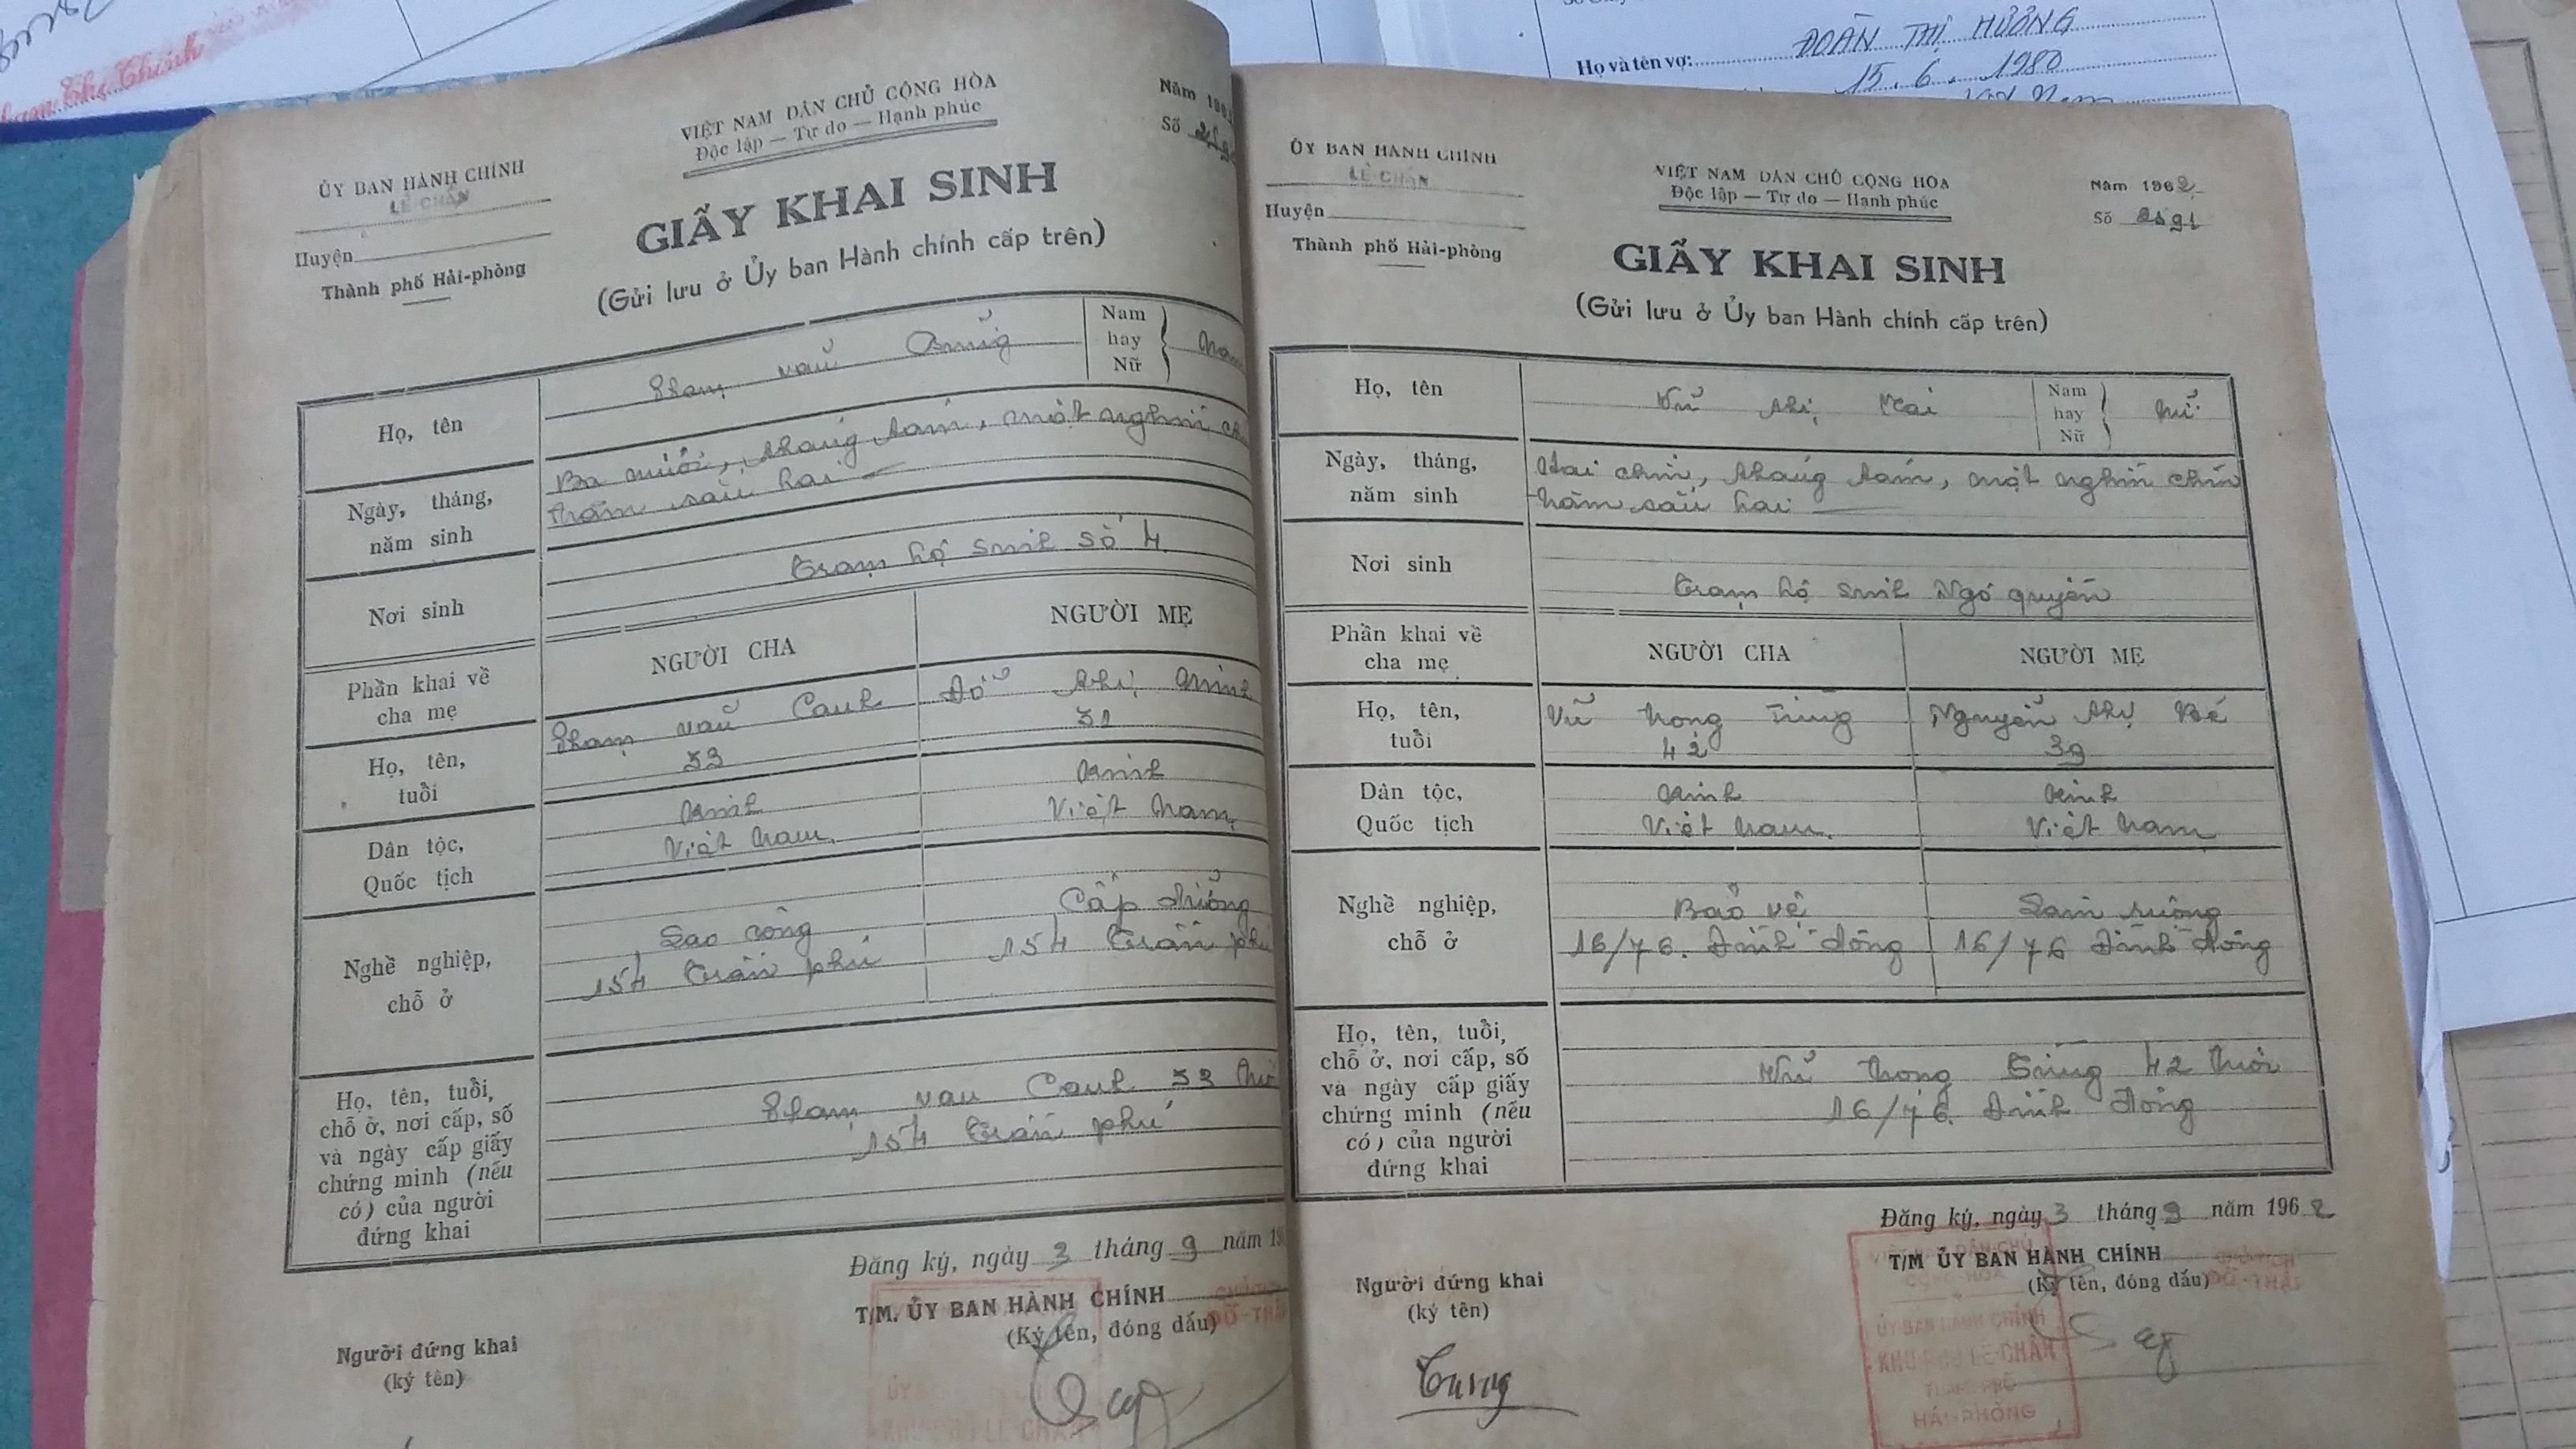 Họ và tên vợ: ĐOÀN THỊ HƯỜNG
15.6.1980
VIỆT NAM DÂN CHỦ CỘNG HÒA
Độc lập — Tự do — Hạnh phúc
Năm 196
Số
ỦY BAN HÀNH CHÍNH
LÊ CHÂN
Huyện
Thành phố Hải-phòng
GIẤY KHAI SINH
(Gửi lưu ở Ủy ban Hành chính cấp trên)
Họ, tên
Phạm văn
Nam
hay
Nữ
Nam
Ngày, tháng,
năm sinh
Ba mươi, tháng tám, một nghìn
trăm sáu hai
Nơi sinh
Trạm hộ sinh số 4
Phần khai về
cha mẹ
NGƯỜI CHA
NGƯỜI MẸ
Họ, tên,
tuổi
Phạm văn Canh
33
Đỗ thị Minh
31
Dân tộc,
Quốc tịch
Kinh
Việt Nam
Kinh
Việt Nam
Nghề nghiệp,
chỗ ở
Lao công
154 Trần phú
Cấp dưỡng
154 Trần phú
Họ, tên, tuổi,
chỗ ở, nơi cấp, số
và ngày cấp giấy
chứng minh (nếu
có) của người
đứng khai
Phạm văn Canh 33
154 Trần phú
Đăng ký, ngày 3 tháng 9 năm 19
T/M. ỦY BAN HÀNH CHÍNH
(Ký tên, đóng dấu)
Người đứng khai
(ký tên)
ỦY BAN HÀNH CHÍNH
LÊ CHÂN
Huyện
Thành phố Hải-phòng
VIỆT NAM DÂN CHỦ CỘNG HÒA
Độc lập — Tự do — Hạnh phúc
Năm 1962
Số 2591
GIẤY KHAI SINH
(Gửi lưu ở Ủy ban Hành chính cấp trên)
Họ, tên
Vũ thị Mai
Nam
hay
Nữ
Nữ
Ngày, tháng,
năm sinh
Hai chín, tháng tám, một nghìn chín
trăm sáu hai
Nơi sinh
Trạm hộ sinh Ngô quyền
Phần khai về
cha mẹ
NGƯỜI CHA
NGƯỜI MẸ
Họ, tên,
tuổi
Vũ trong Tùng
42
Nguyễn thị Bé
39
Dân tộc,
Quốc tịch
Kinh
Việt Nam
Kinh
Việt Nam
Nghề nghiệp,
chỗ ở
Bảo vệ
16/76. Đình đông
Làm ruộng
16/76 Đình đông
Họ, tên, tuổi,
chỗ ở, nơi cấp, số
và ngày cấp giấy
chứng minh (nếu
có) của người
đứng khai
Vũ trong Tùng 42 tuổi
16/76. Đình đông
Đăng ký, ngày 3 tháng 9 năm 1962
T/M ỦY BAN HÀNH CHÍNH
(Ký tên, đóng dấu)
Người đứng khai
(ký tên)
Tung
ỦY BAN HÀNH CHÍNH
KHU PHỐ LÊ-CHÂN
THÀNH PHỐ
HẢI-PHÒNG